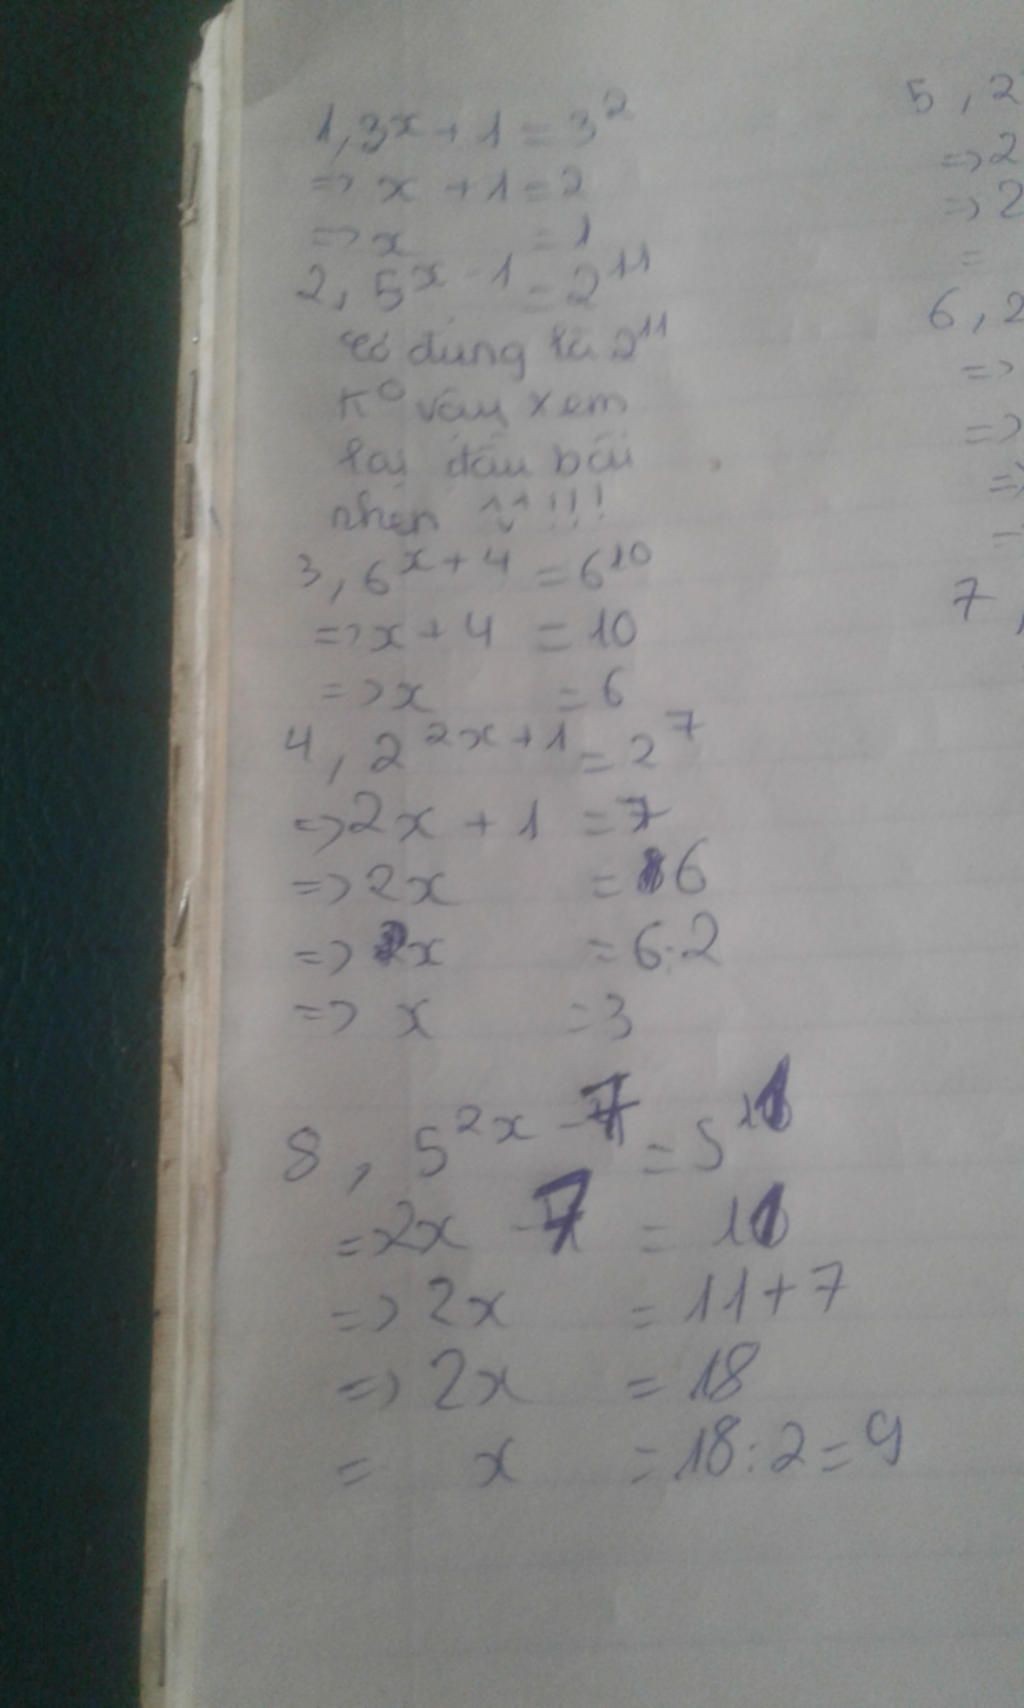 1, 3^x + 1 = 3^2
=> x + 1 = 2
=> x = 1
2, 5^x - 1 = 2^11
Có đúng là 2^11
K° vậy xem
lại đầu bài
nhen ^v^ !!!
3, 6^x + 4 = 6^10
=> x + 4 = 10
=> x = 6
4, 2^2x + 1 = 2^7
=> 2x + 1 = 7
=> 2x = 6
=> x = 6:2
=> x = 3
8, 5^2x - 7 = 5^11
=> 2x - 7 = 11
=> 2x = 11 + 7
=> 2x = 18
= x = 18 : 2 = 9
5, 2
=> 2
=> 2
=
6, 2
=>
=>
=>
7,